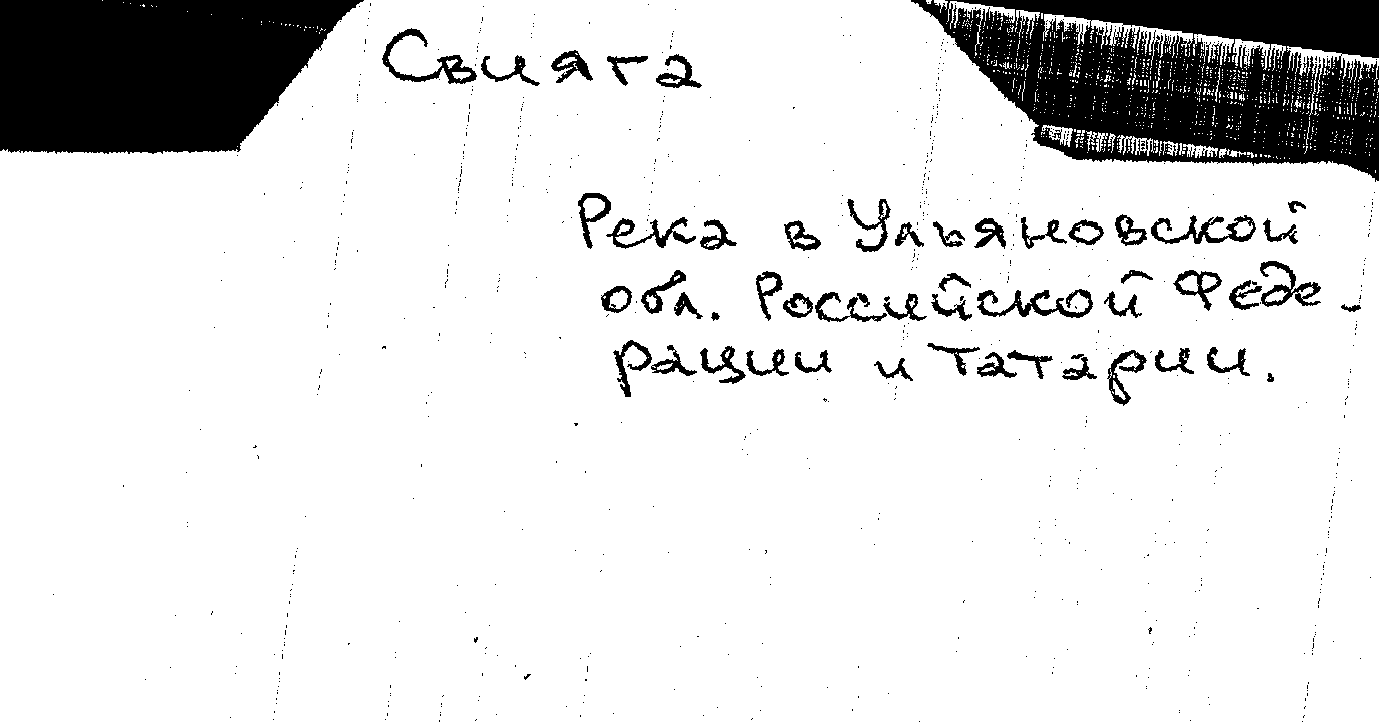 Свияга
Река в Ульяновской
обл. Российской Феде-
рации и Татарии.